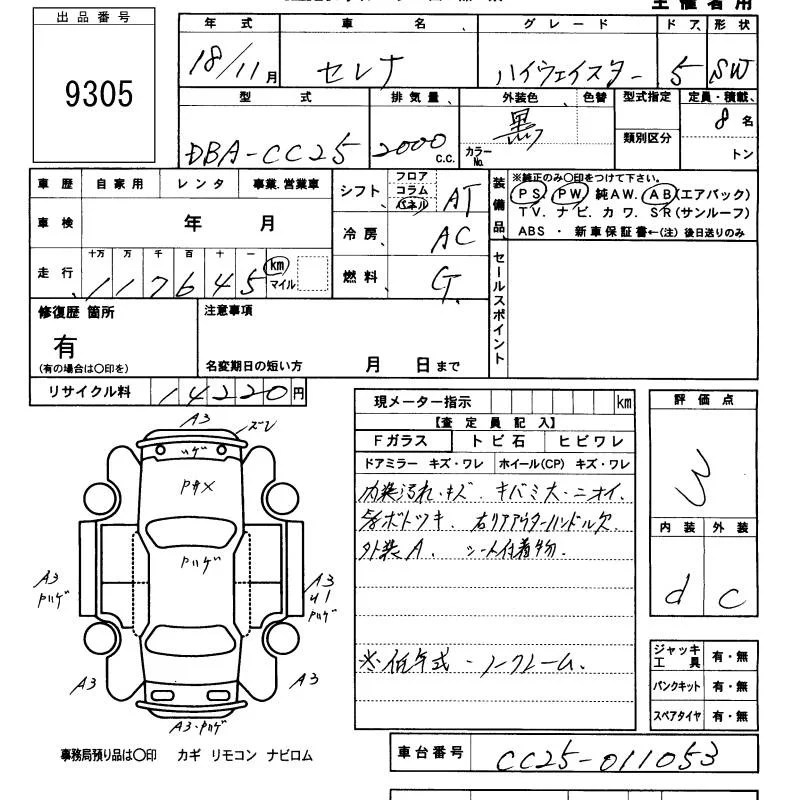 主催者用
出品番号
9305
年式 車名 グレード ドア 形状
18/11月 セレナ ハイウェイスター 5 SW
型式 排気量 外装色 色替 型式指定 定員・積載
DBA-CC25 2000 C.C. カラーNo. 黒 類別区分 8名
トン
車歴 自家用 レンタ 事業.営業車
車検 年 月
走行 十万 万 千 百 十 一
117645 km マイル
シフト フロア コラム パネル AT
冷房 AC
燃料 G.
装備品
※純正のみ○印をつけて下さい。
PS. PW. 純AW. AB(エアバック)
TV. ナビ. カワ. SR(サンルーフ)
ABS ・ 新車保証書←(注) 後日送りのみ
セールスポイント
修復歴 箇所
有
(有の場合は○印を)
注意事項
名変期日の短い方 月 日まで
リサイクル料 14220円
現メーター指示 km
【査定員記入】
Fガラス トビ石 ヒビワレ
ドアミラー キズ・ワレ ホイール(CP) キズ・ワレ
内装汚れ・キズ キバミ大・ニオイ.
ボトツキ. 右リアアウターハンドル欠.
外装A. シート付着物.
※低年式・ノークレーム.
評価点
3
内装 外装
d c
ジャッキ工具 有・無
パンクキット 有・無
スペアタイヤ 有・無
A3
ズレ
A3
A3
A3
A3
A3
事務局預り品は○印 カギ リモコン ナビロム
車台番号 CC25-011053